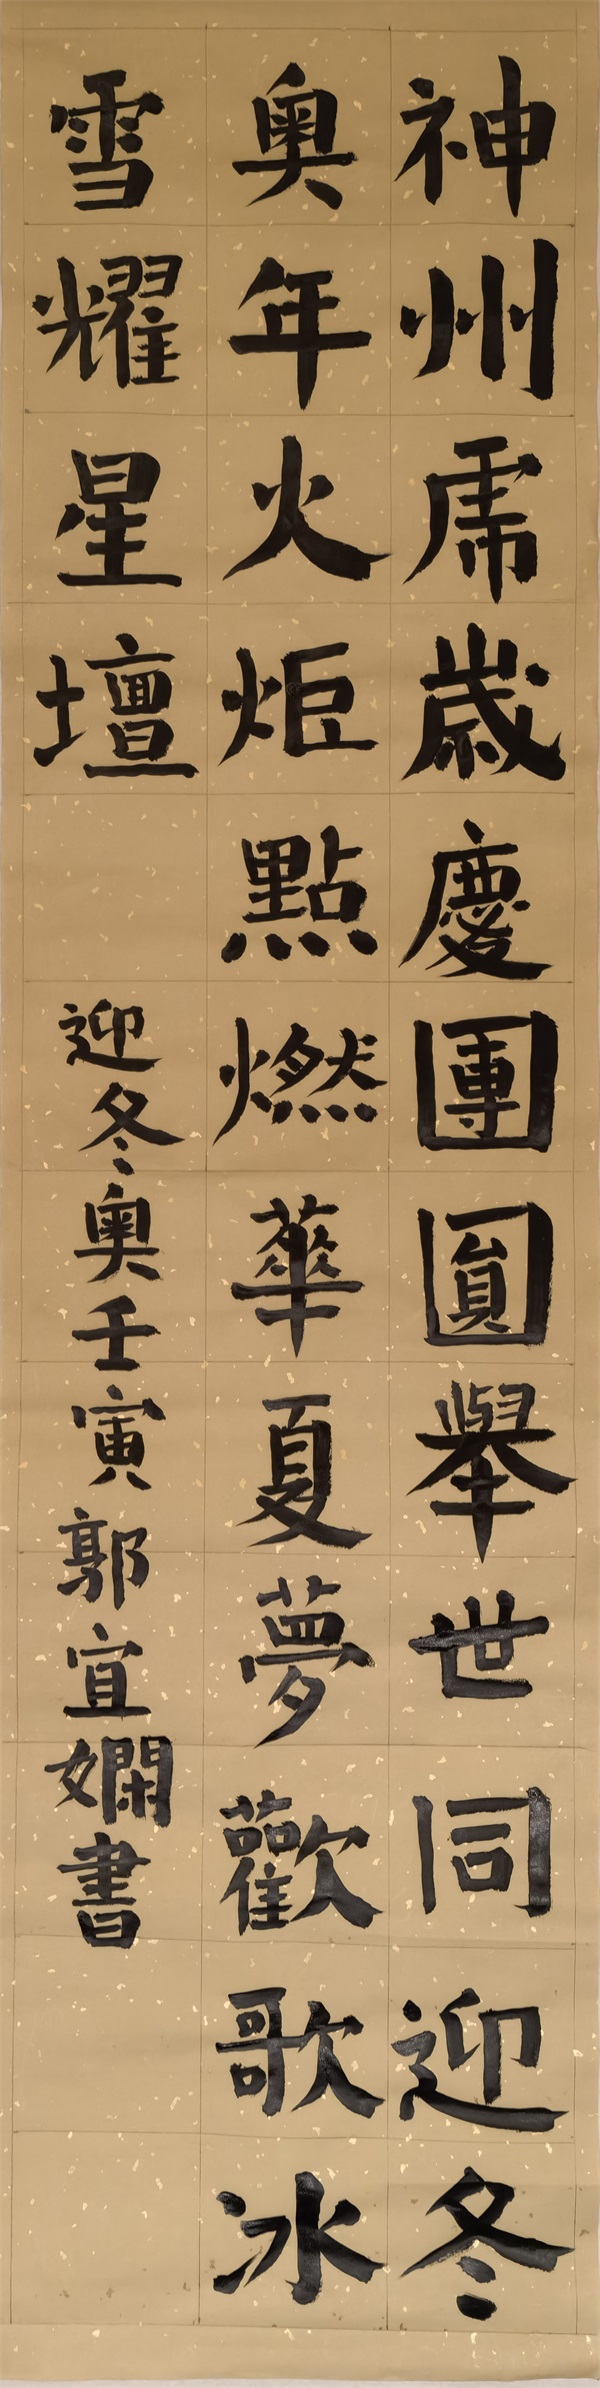 神州虎歲慶團圓舉世同迎冬
奧年火炬點燃華夏夢歡歌冰
雪耀星壇
迎冬奧壬寅郭宜嫻書